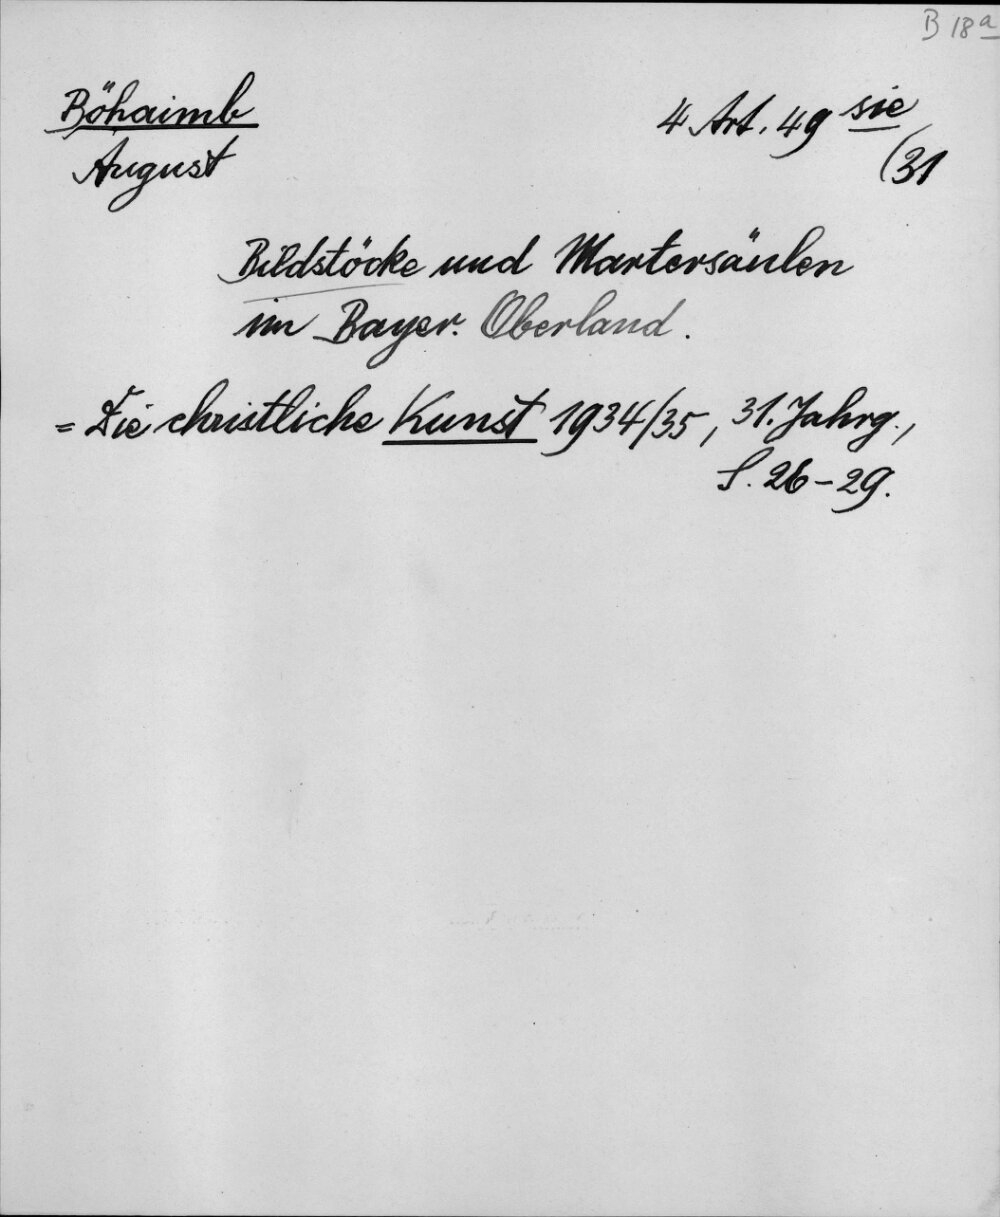 B 18a
Böhaimb
August
4 Art. 49 sie
(31
Bildstöcke und Martersäulen
im Bayer. Oberland.
= Die christliche Kunst 1934/35, 31. Jahrg.,
S. 26-29.